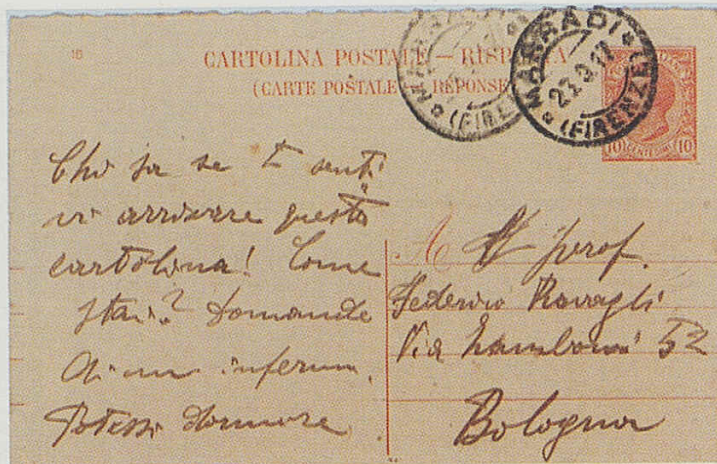 16
CARTOLINA POSTALE — RISPOSTA
(CARTE POSTALE — RÉPONSE)
MARRADI
(FIRENZE)
10 CENTESIMI 10
Chi sa se ti
vi arrivare questa
cartolina! Come
stai? Domande
di un infermo.
Potessi dormire
Al prof.
Federico Ravagli
Via Zamboni 52
Bologna